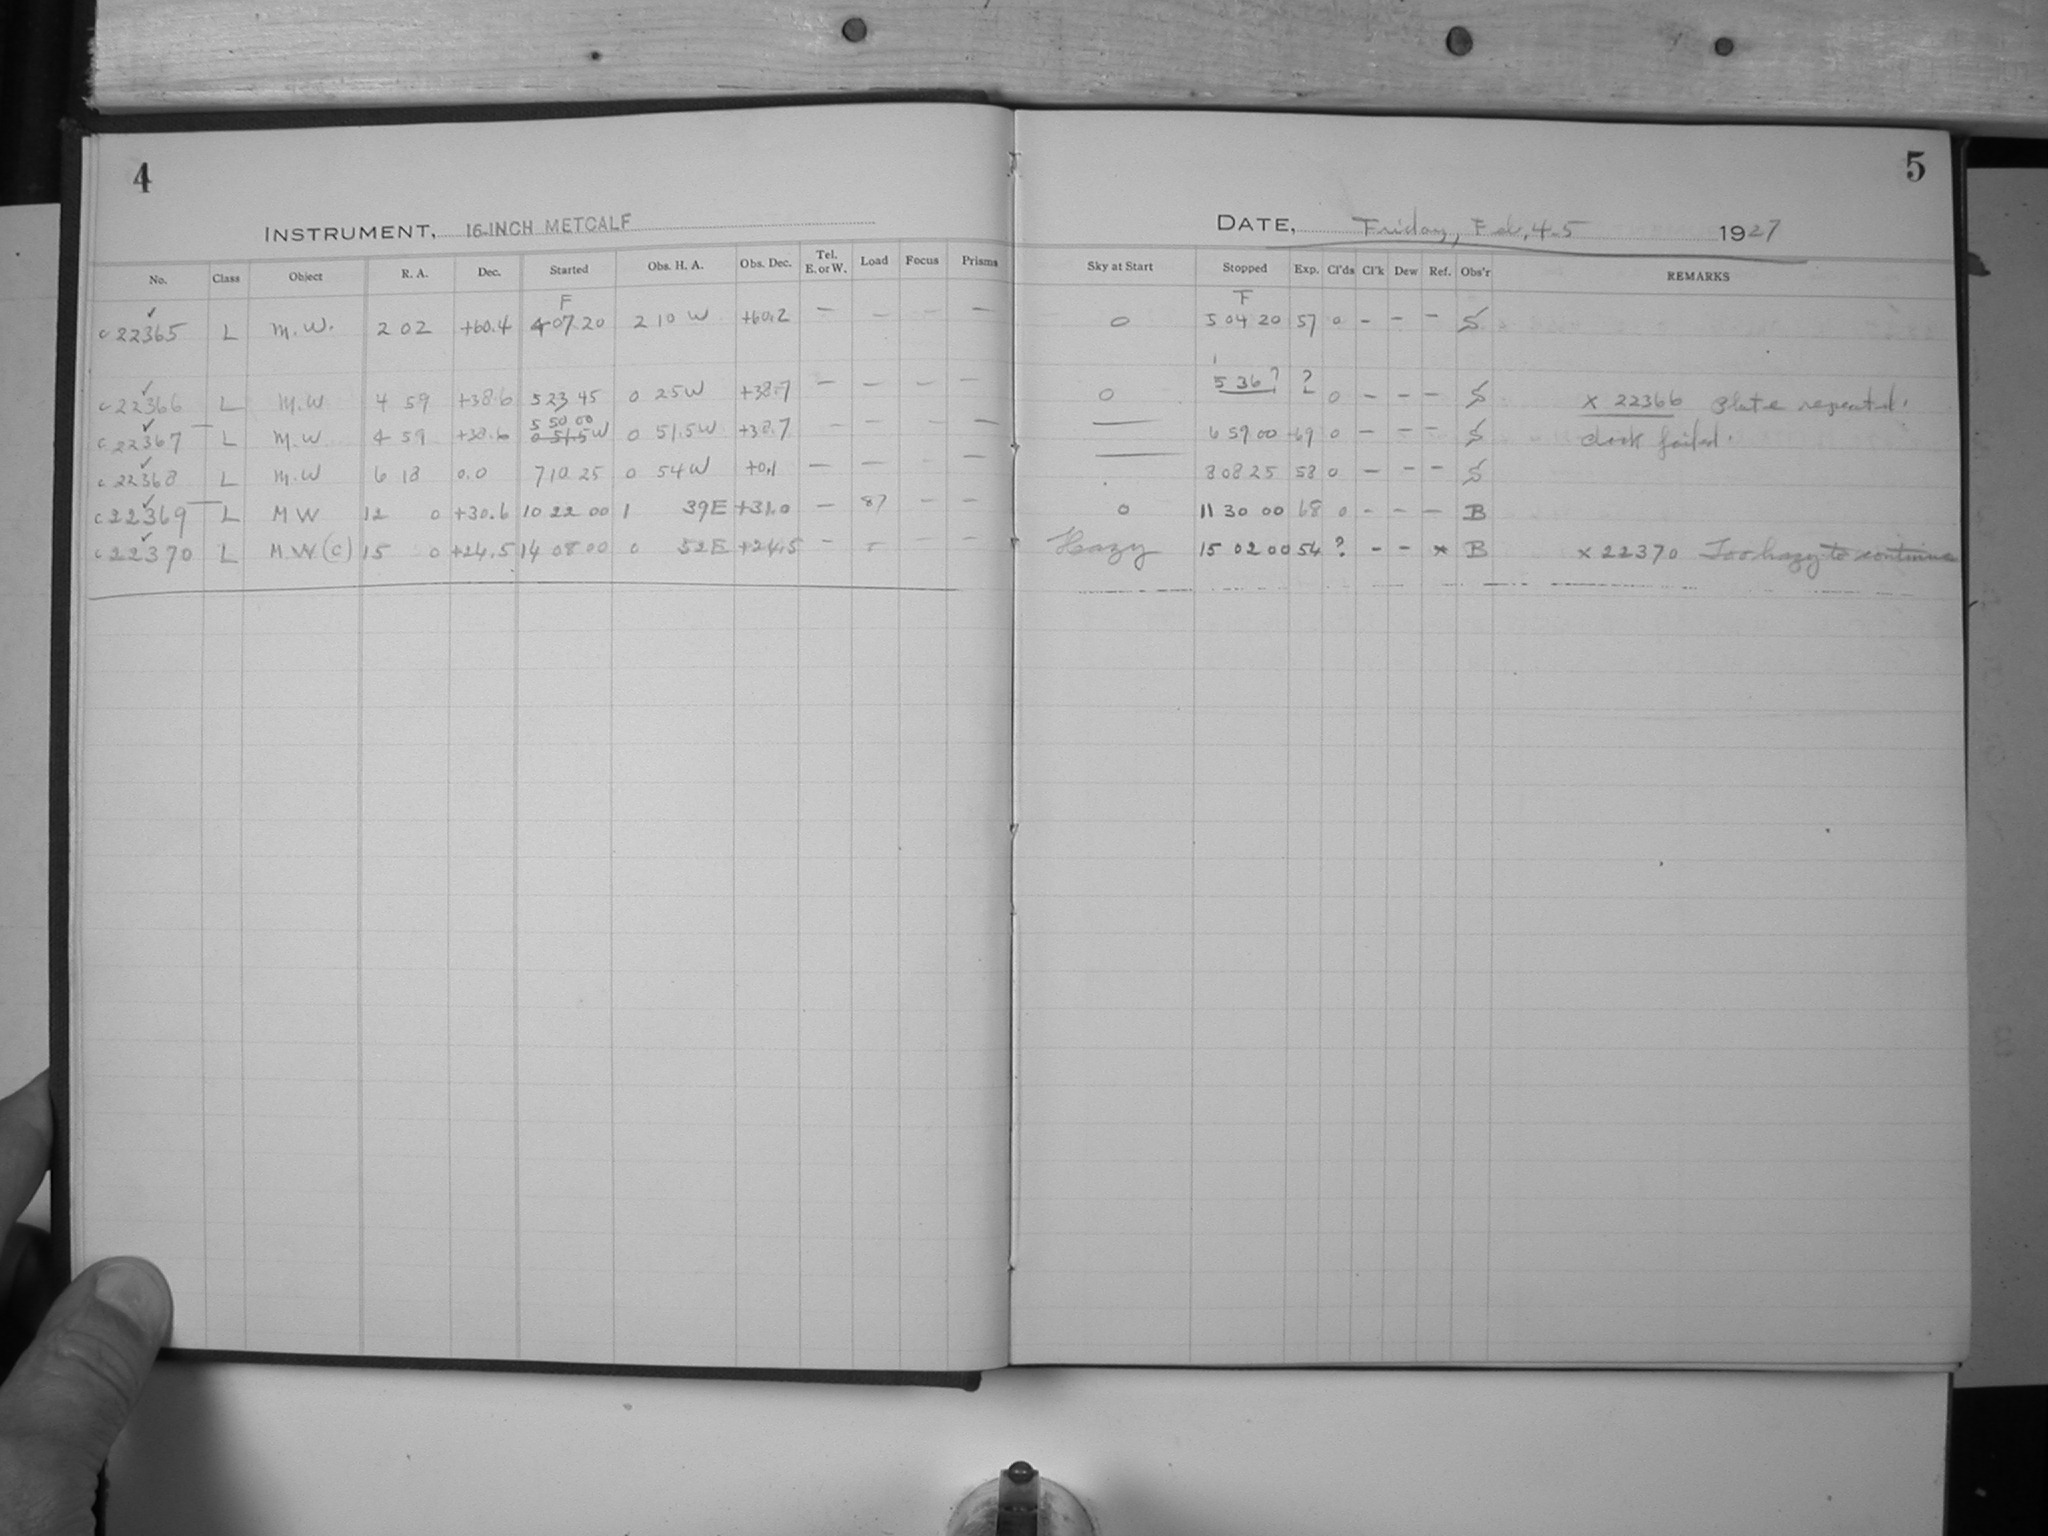 4
INSTRUMENT, 16-INCH METCALF
No. Class Object R. A. Dec. Started Obs. H. A. Obs. Dec. Tel. E. or W. Load Focus Prisms
F
c 22365 L M.W. 2 02 +60.4 4 07 20 2 10 W +60.2 — — — —
c 22366 L M.W 4 59 +38.6 5 23 45 0 25 W +38.7 — — — —
5 50 00
c 22367 L M.W 4 59 +38.6 0 51.5 W 0 51.5 W +38.7 — — — —
c 22368 L M.W 6 18 0.0 7 10 25 0 54 W +0.1 — — — —
c 22369 L M W 12 0 +30.6 10 22 00 1 39 E +31.0 — 87 — —
c 22370 L M.W (C) 15 0 +24.5 14 08 00 0 52 E +24.5 — — — —
5
DATE, Friday, Feb. 4-5 1927
Sky at Start Stopped Exp. Cl'ds Cl'k Dew Ref. Obs'r REMARKS
F
0 5 04 20 57 0 - - - S
0 5 36? ? 0 - - - S x 22366 Plate repeated.
— 6 59 00 69 0 - - - S clock failed.
— 8 08 25 58 0 - - - S
0 11 30 00 68 0 - - - B
Hazy 15 02 00 54 ? - - x B x 22370 Too hazy to continue